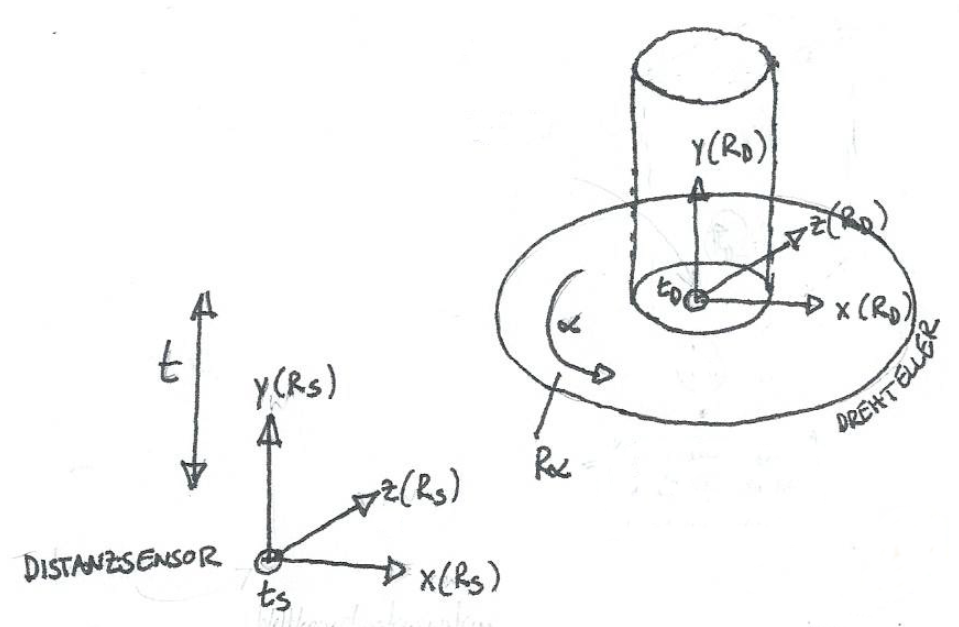 y(R_D)
z(R_D)
t_D
x(R_D)
α
DREHTELLER
R_α
t
y(R_S)
z(R_S)
DISTANZSENSOR
x(R_S)
t_S